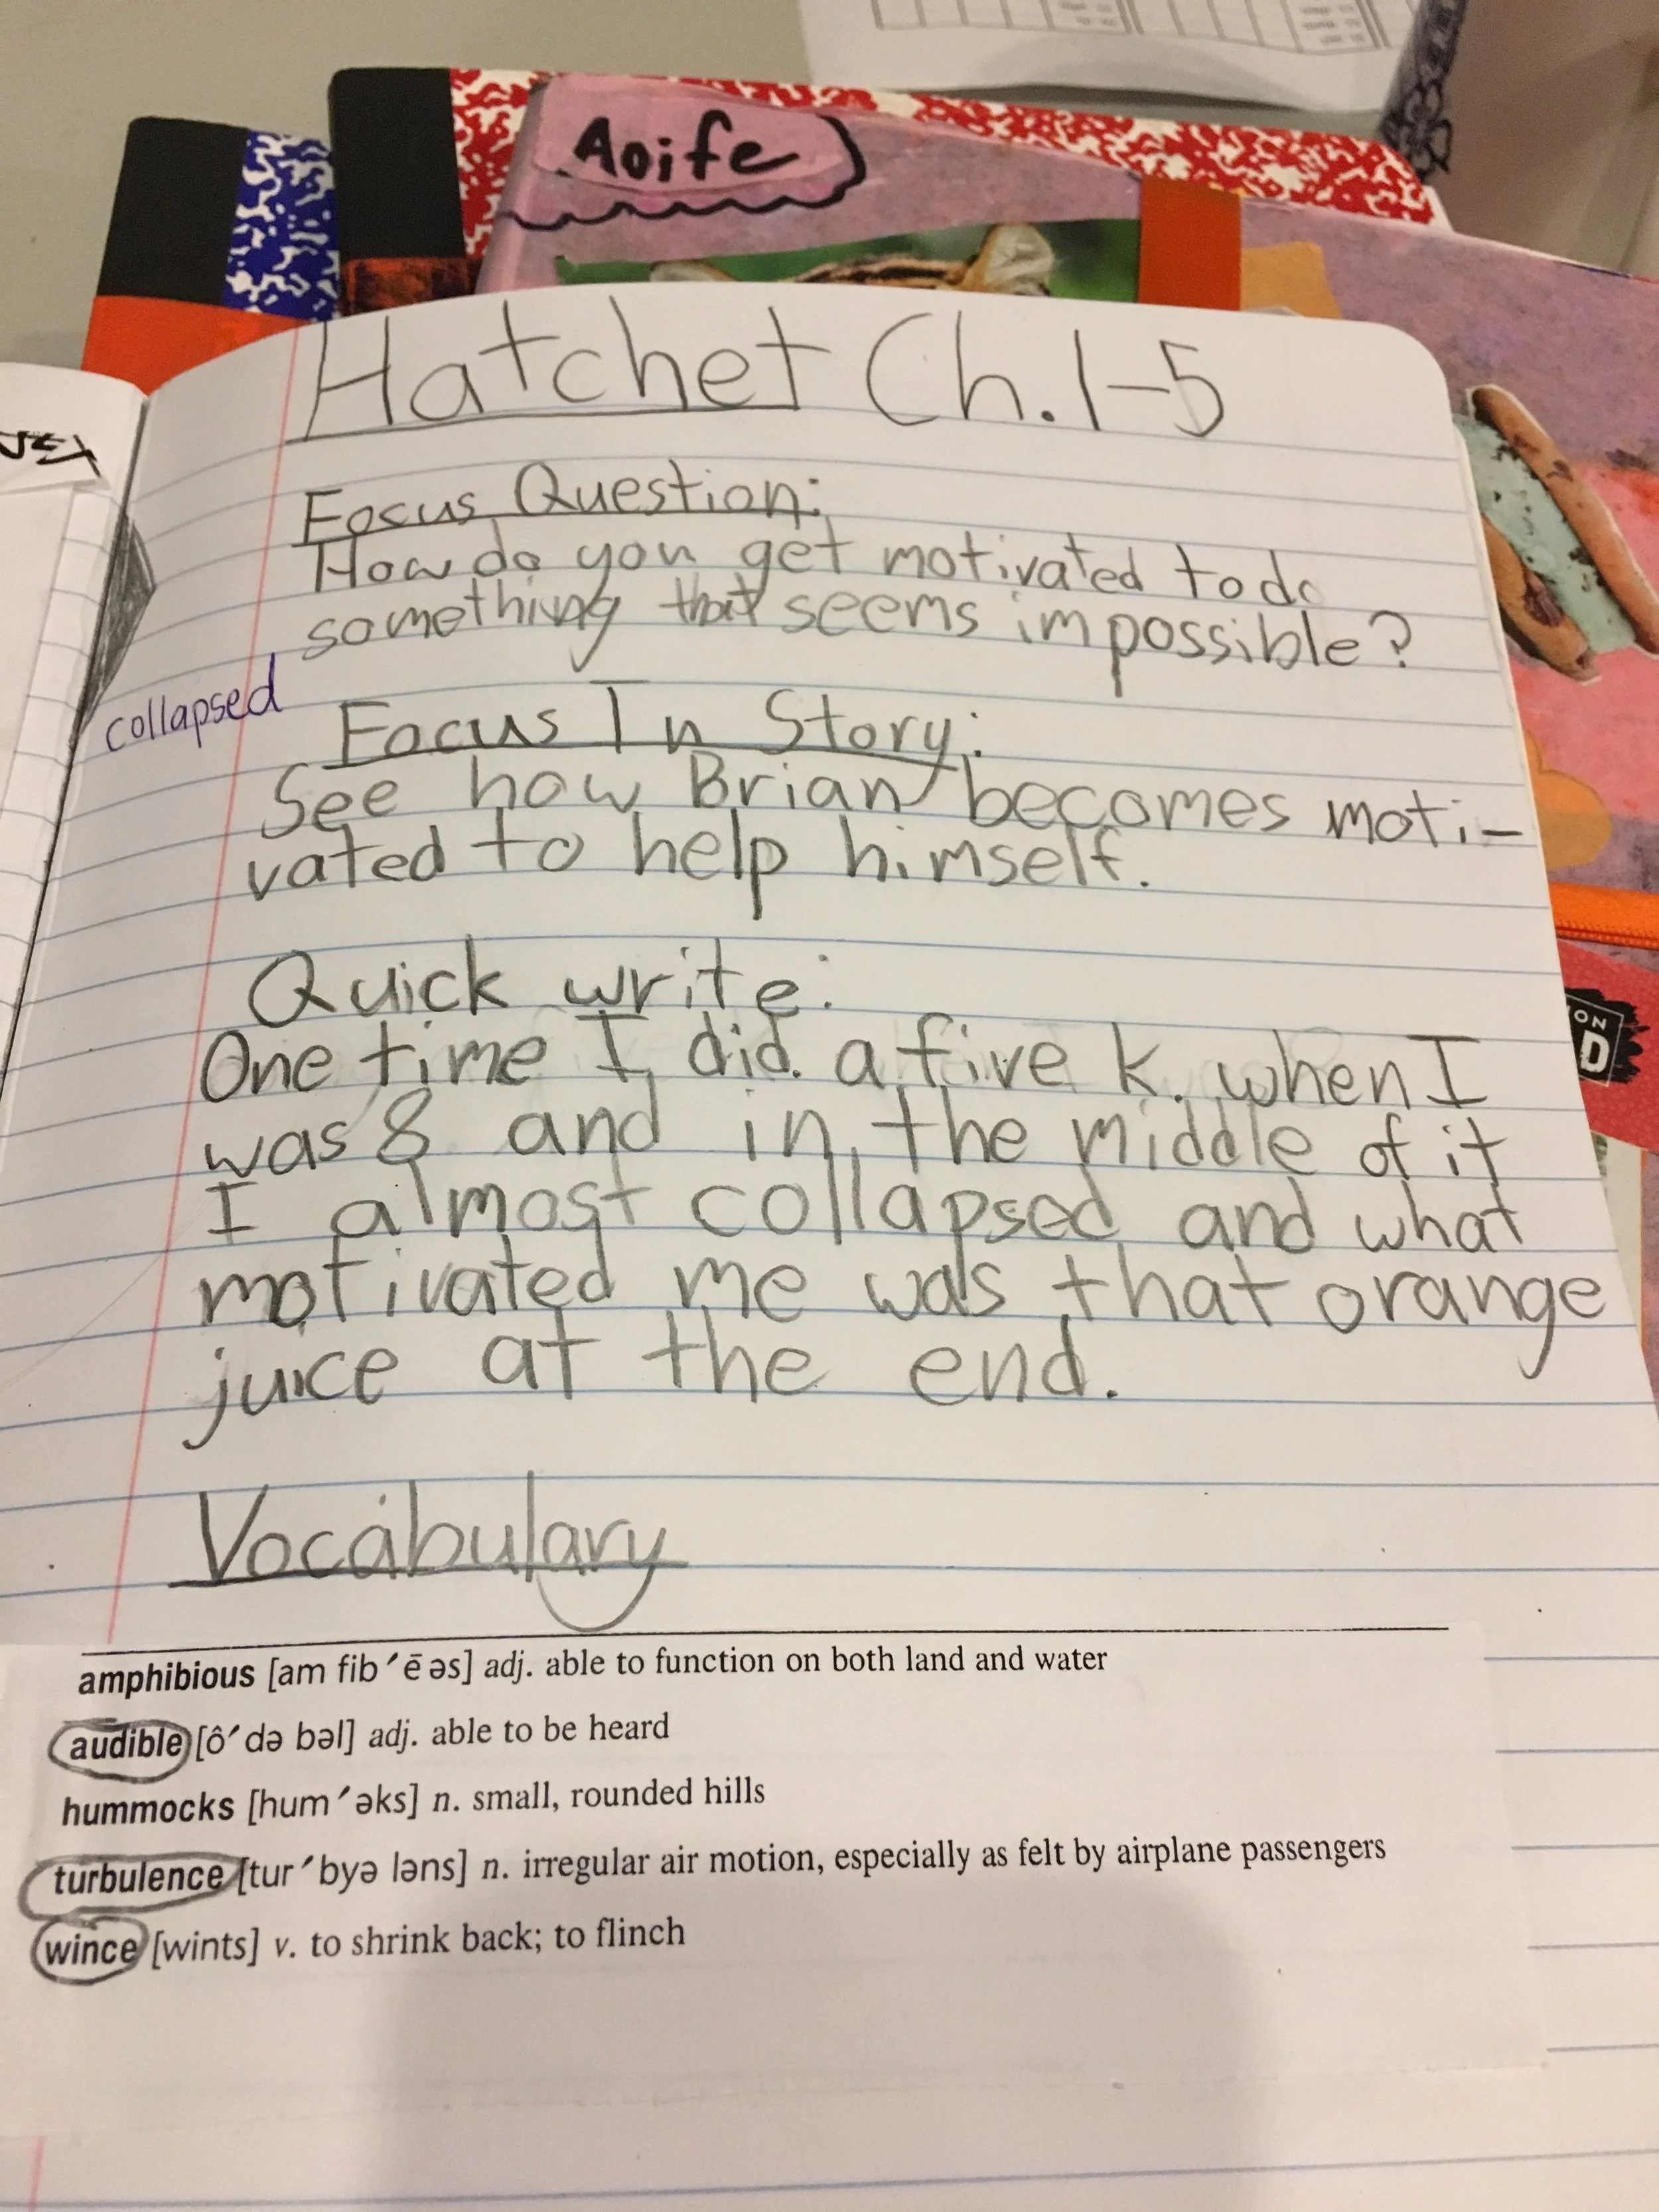 Aoife
Hatchet Ch. 1-5
Focus Question:
How do you get motivated to do
something that seems impossible?
collapsed
Focus In Story:
See how Brian becomes moti-
vated to help himself.
Quick write:
One time I did a five k. when I
was 8 and in the middle of it
I almost collapsed and what
motivated me was that orange
juice at the end.
Vocabulary
amphibious [am fib′ē əs] adj. able to function on both land and water
audible [ô′də bəl] adj. able to be heard
hummocks [hum′əks] n. small, rounded hills
turbulence [tur′byə ləns] n. irregular air motion, especially as felt by airplane passengers
wince [wints] v. to shrink back; to flinch
ON
D